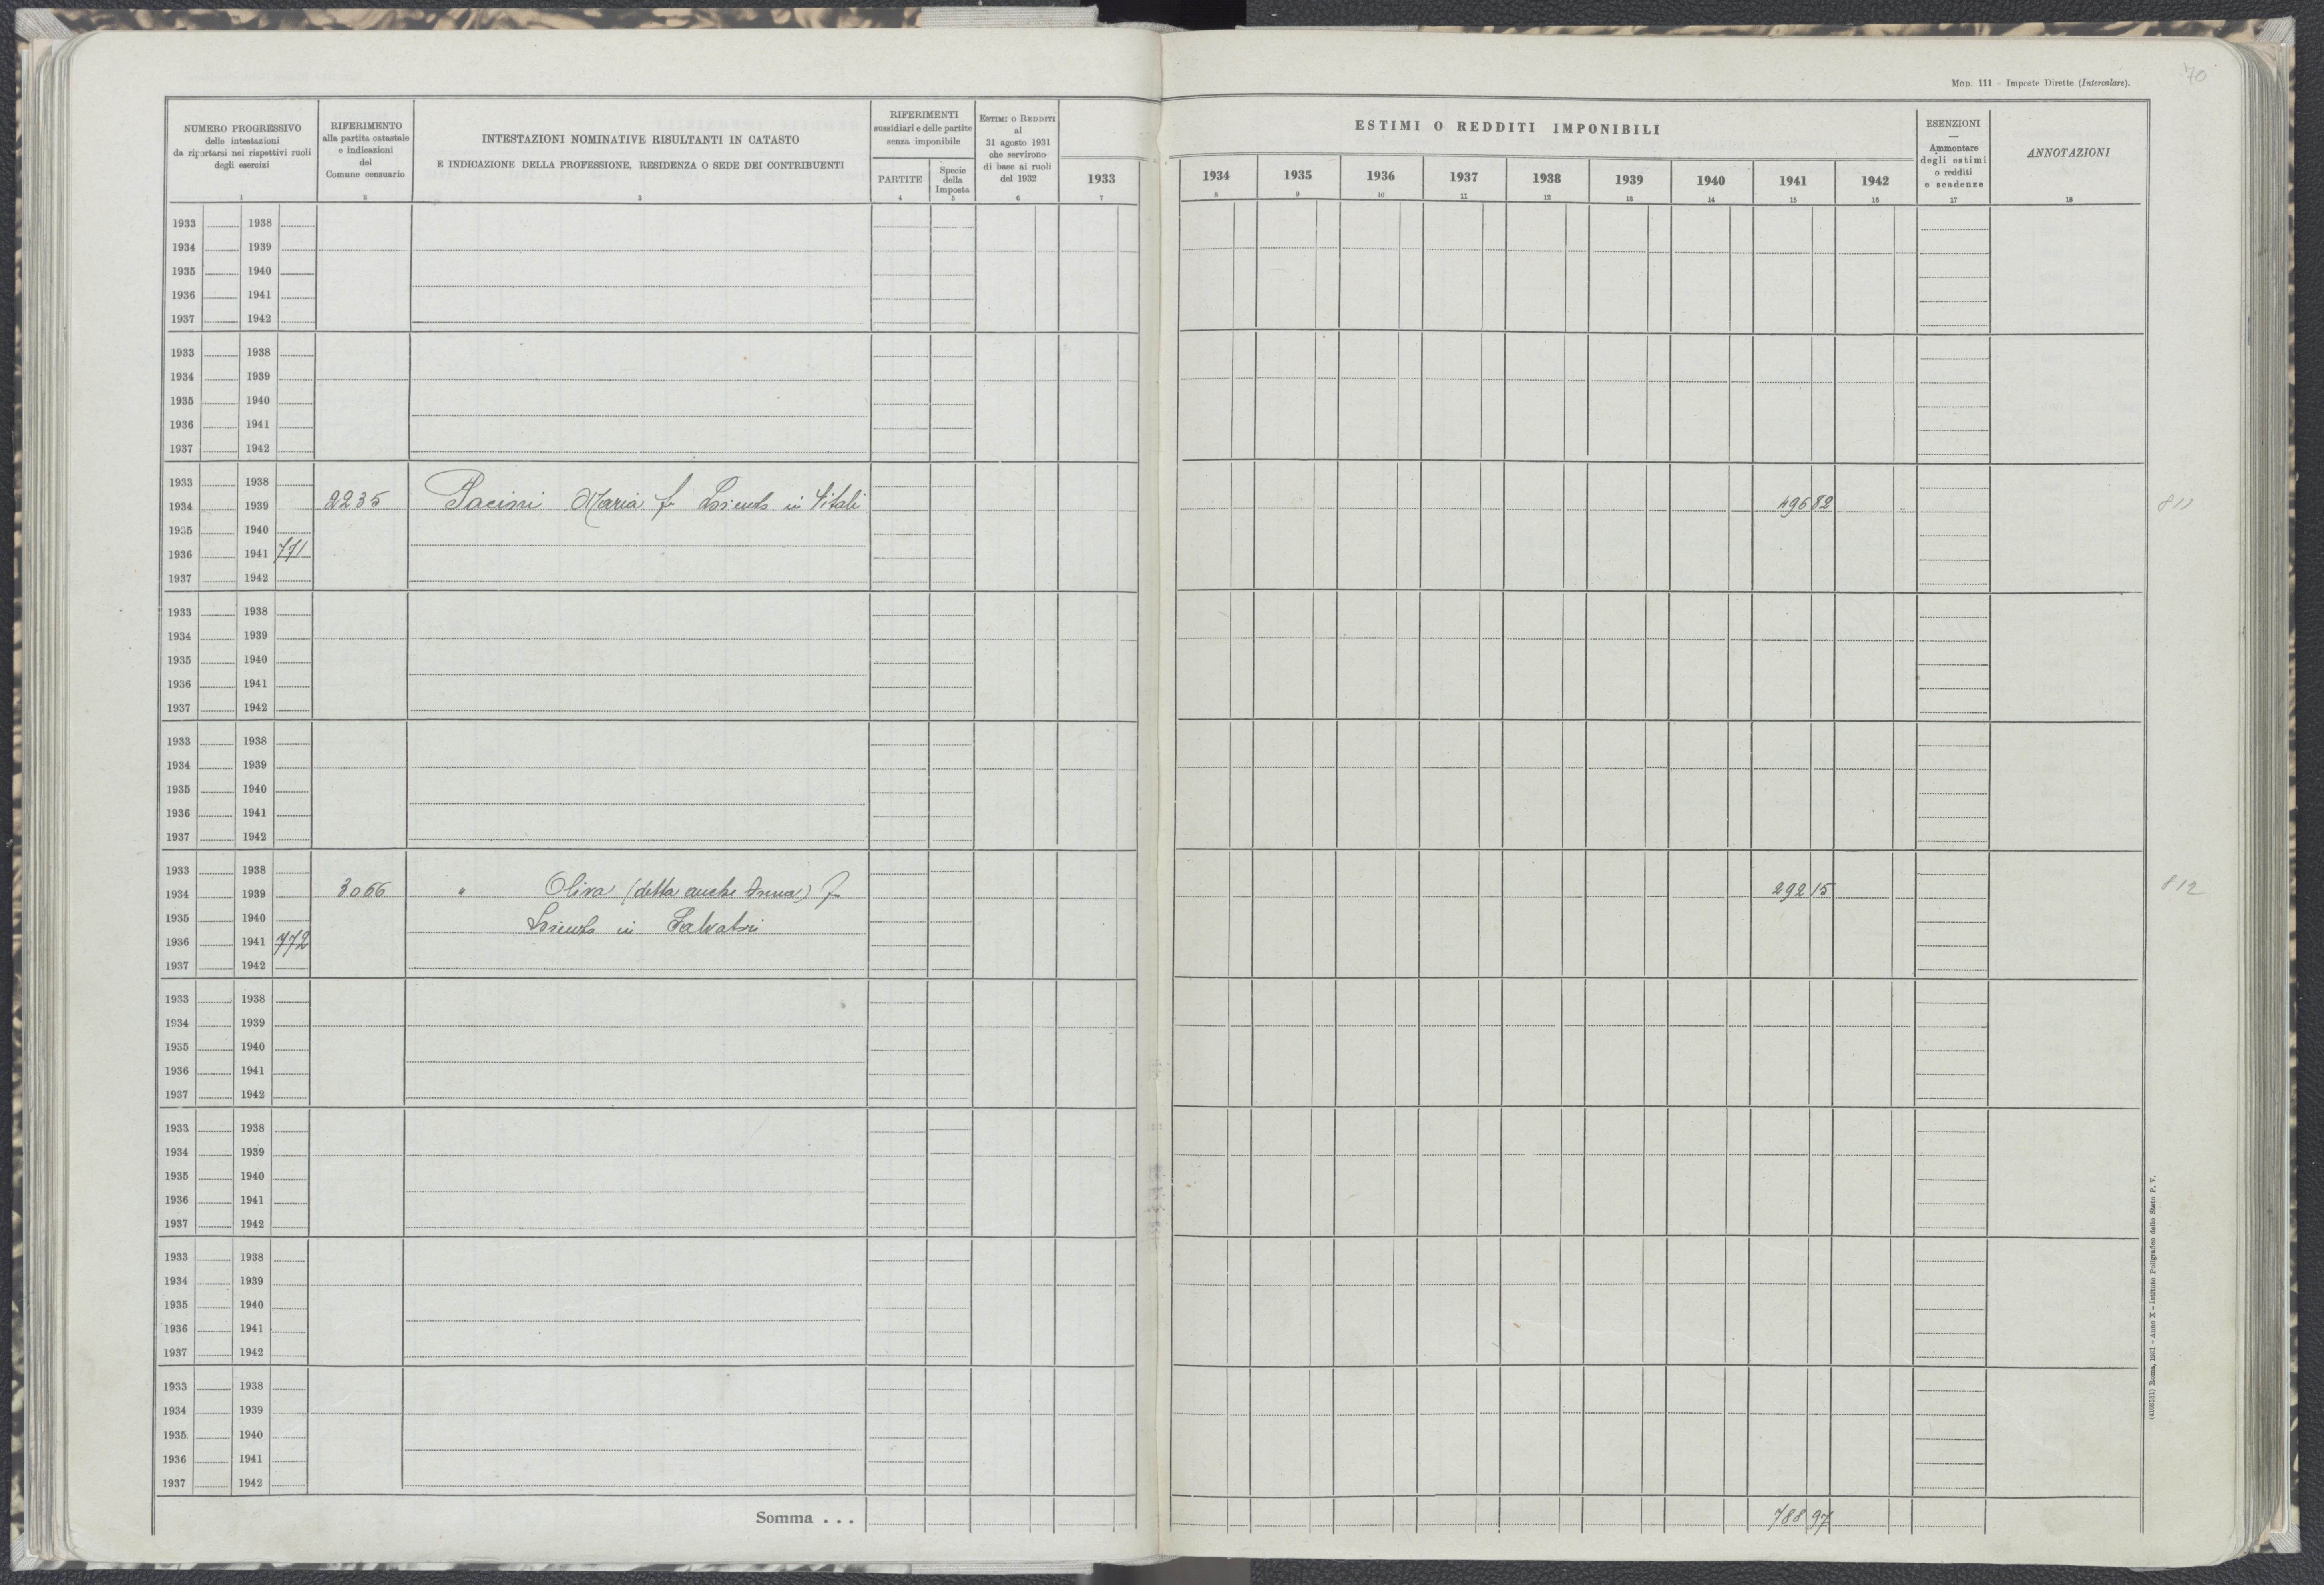 Mod. 111 – Imposte Dirette (Intercalare).
70
NUMERO PROGRESSIVO
delle intestazioni
da riportarsi nei rispettivi ruoli
degli esercizi
1
RIFERIMENTO
alla partita catastale
e indicazioni
del
Comune censuario
2
INTESTAZIONI NOMINATIVE RISULTANTI IN CATASTO
E INDICAZIONE DELLA PROFESSIONE, RESIDENZA O SEDE DEI CONTRIBUENTI
3
RIFERIMENTI
sussidiari e delle partite
senza imponibile
PARTITE
4
Specie
della
Imposta
5
ESTIMI O REDDITI
al
31 agosto 1931
che servirono
di base ai ruoli
del 1932
6
ESTIMI O REDDITI IMPONIBILI
1933 1934 1935 1936 1937 1938 1939 1940 1941 1942
7 8 9 10 11 12 13 14 15 16
ESENZIONI
—
Ammontare
degli estimi
o redditi
e scadenze
17
ANNOTAZIONI
18
1933 1938
1934 1939
1935 1940
1936 1941
1937 1942
1933 1938
1934 1939
1935 1940
1936 1941
1937 1942
1933 1938
1934 1939 2235 Pacini Maria f. Lorenzo in Vitali 496 82 811
1935 1940
1936 1941 771
1937 1942
1933 1938
1934 1939
1935 1940
1936 1941
1937 1942
1933 1938
1934 1939
1935 1940
1936 1941
1937 1942
1933 1938
1934 1939 3066 " Oliva (detta anche) f. 292 15 812
1935 1940 Lorenzo in Salvatori
1936 1941 772
1937 1942
1933 1938
1934 1939
1935 1940
1936 1941
1937 1942
1933 1938
1934 1939
1935 1940
1936 1941
1937 1942
1933 1938
1934 1939
1935 1940
1936 1941
1937 1942
1933 1938
1934 1939
1935 1940
1936 1941
1937 1942
Somma . . . 788 97
(4103531) Roma, 1931 – Anno X – Istituto Poligrafico dello Stato P. V.